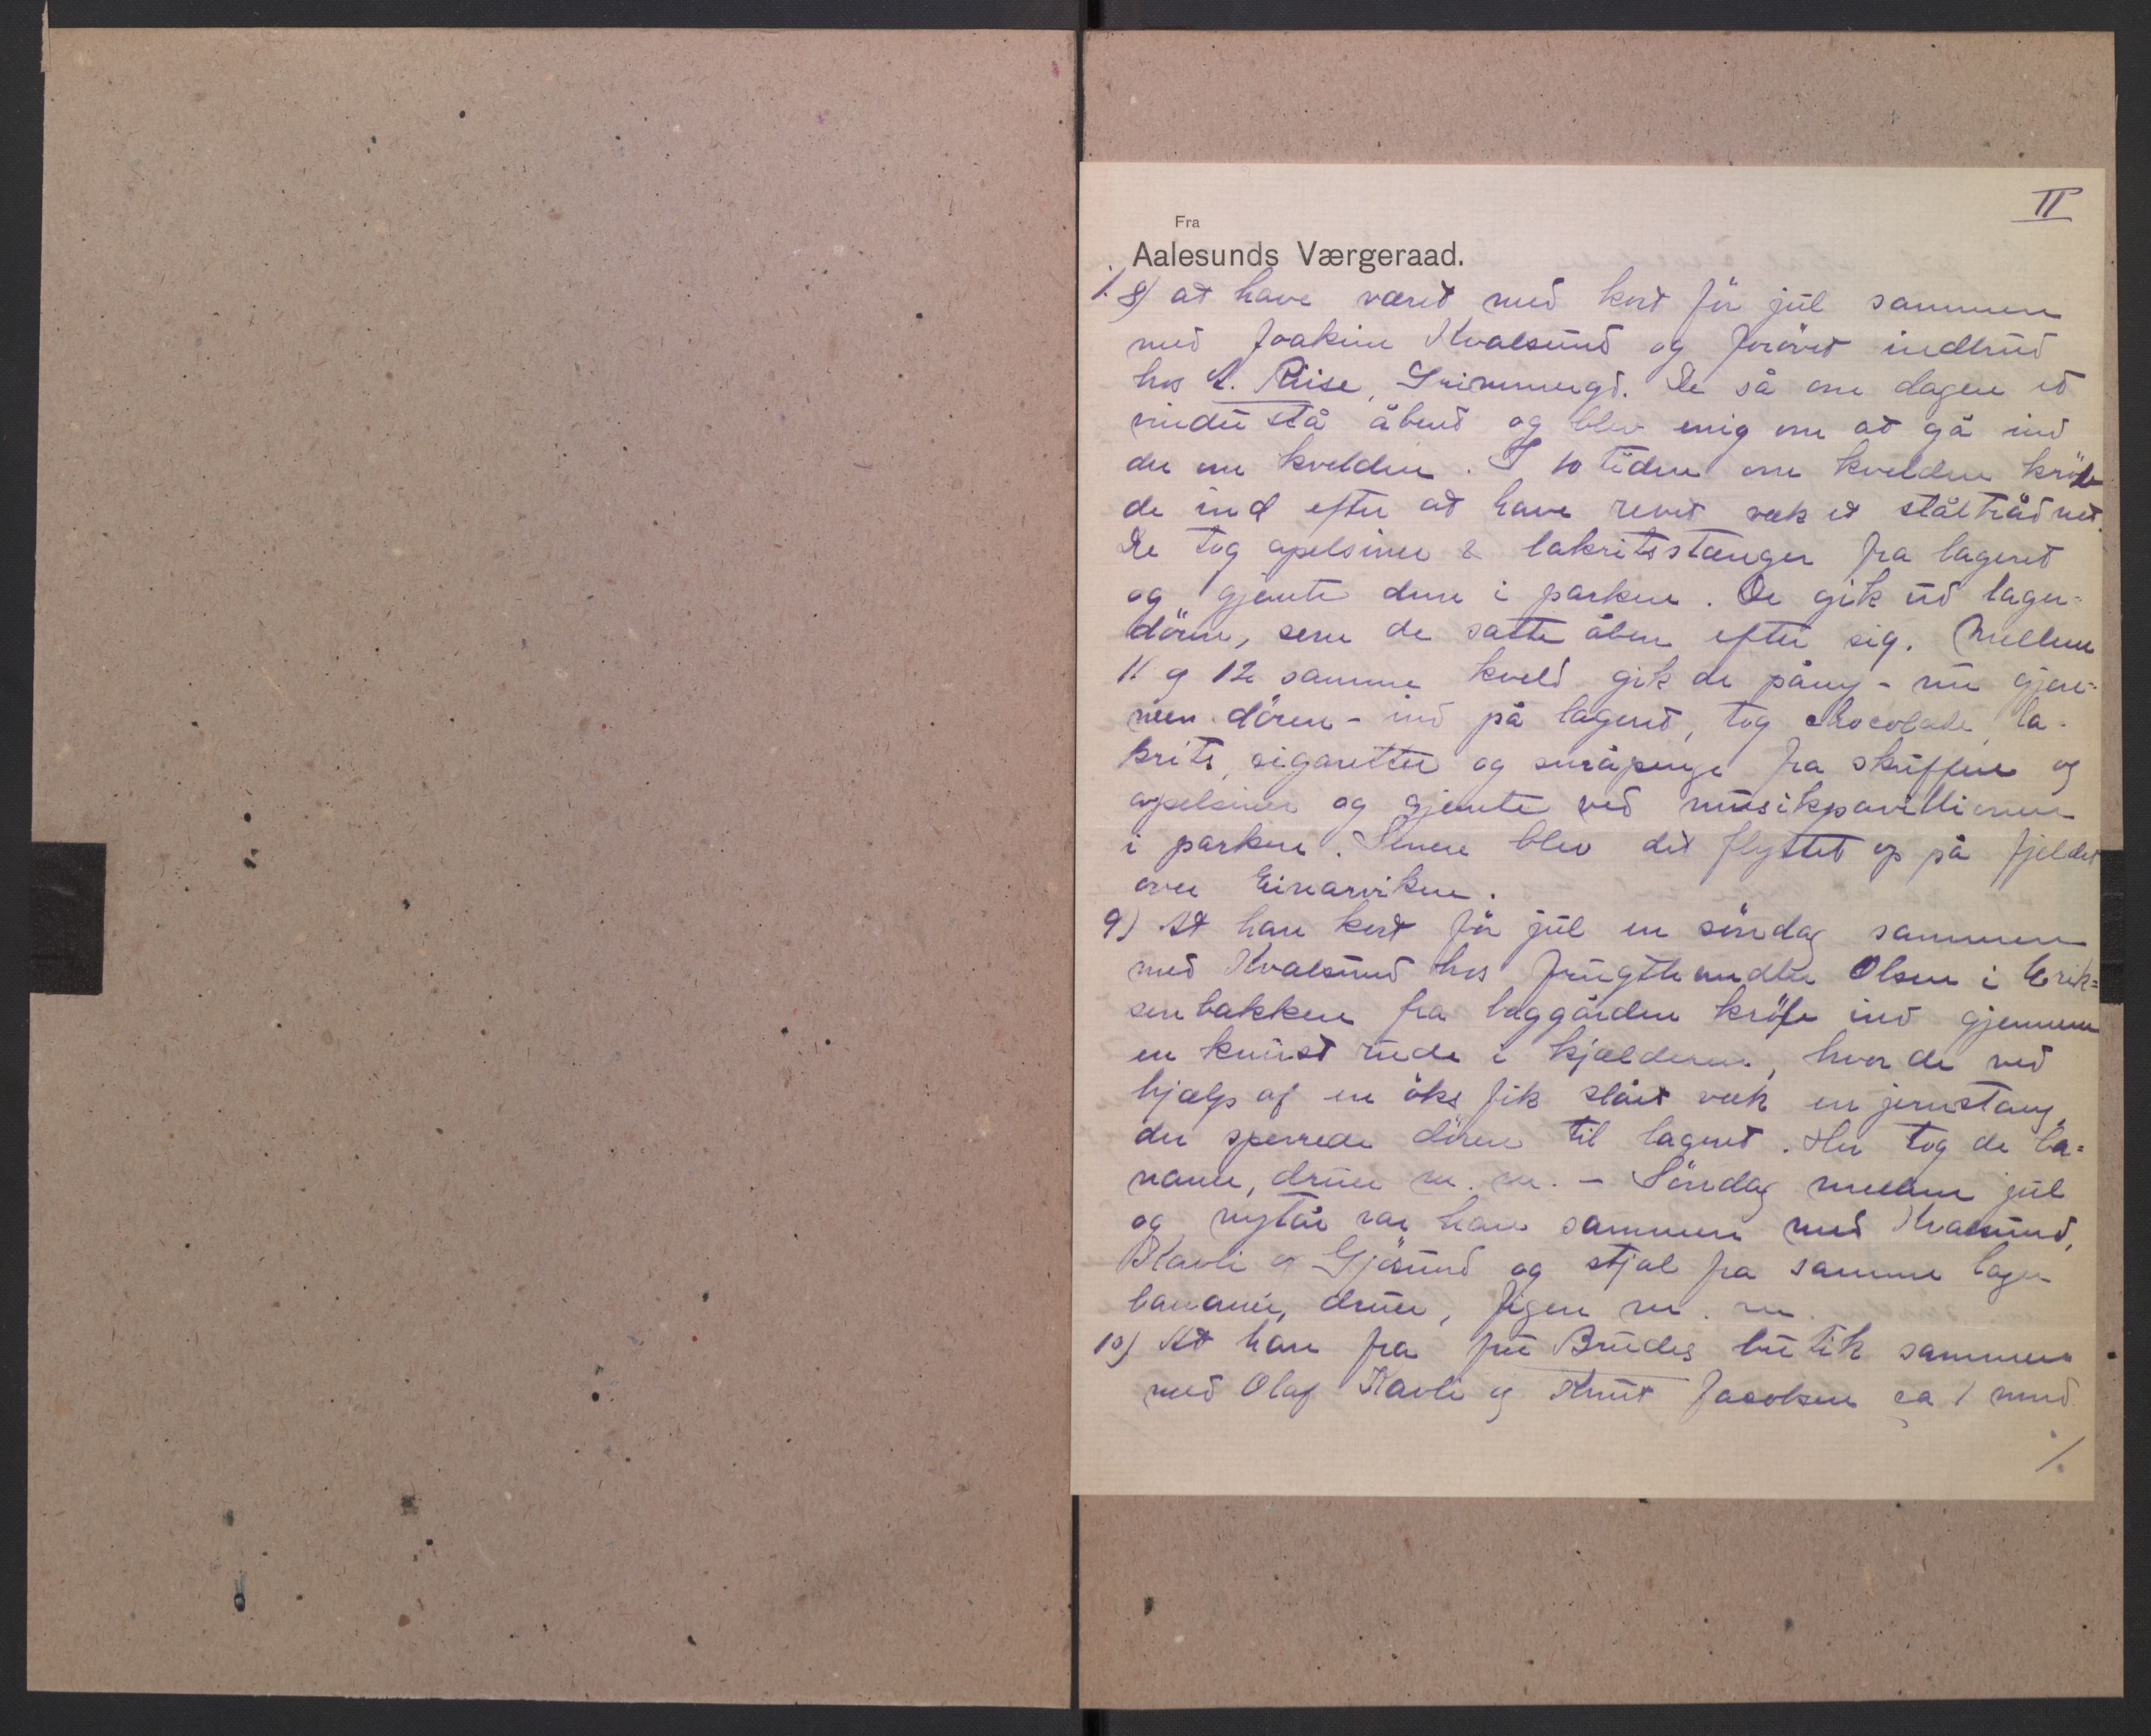 II
Fra
Aalesunds Værgeraad.
./. 8) at have været med kort før jul sammen
med Joakim Kvalsund og forøvet indbrud
hos A. Riise, Grimmergd. De så om dagen et
vindu stå åbent og blev enig om at gå ind
der om kvelden. I 10 tiden om kvelden krøb
de ind efter at have revet væk et ståltrådnet.
De tog apelsiner & lakritsstænger fra lageret
og gjemte dem i parken. De gik ud lager-
døren, som de satte åben efter sig. Mellem
11 og 12 samme kveld gik de påny - nu gjen-
nem døren - ind på lageret, tog chocolade, la-
krits, sigaretter og småpenge fra skuffen og
apelsiner og gjemte ved musikpavillionen
i parken. Senere blev det flyttet op på fjeldet
over Einarviken.
9) At han kort før jul en søndag sammen
med Kvalsund hos frugthandler Olsen i Erik=
senbakken fra baggården krøb ind gjennem
en knust rude i kjælderen, hvor de ved
hjælp af en øks fik slået væk en jernstang,
der sperrede døren til lageret. Her tog de ba=
naner, druer m. m. - Søndag mellem jul
og nytår var han sammen med Kvalsund,
Kavli og Gjøsund og stjal fra samme lager
bananer, druer, figen m. m.
10) At han fra fru Brudes butik sammen
med Olaf Kavli og Knut Jacobsen ca 1 mnd
./.